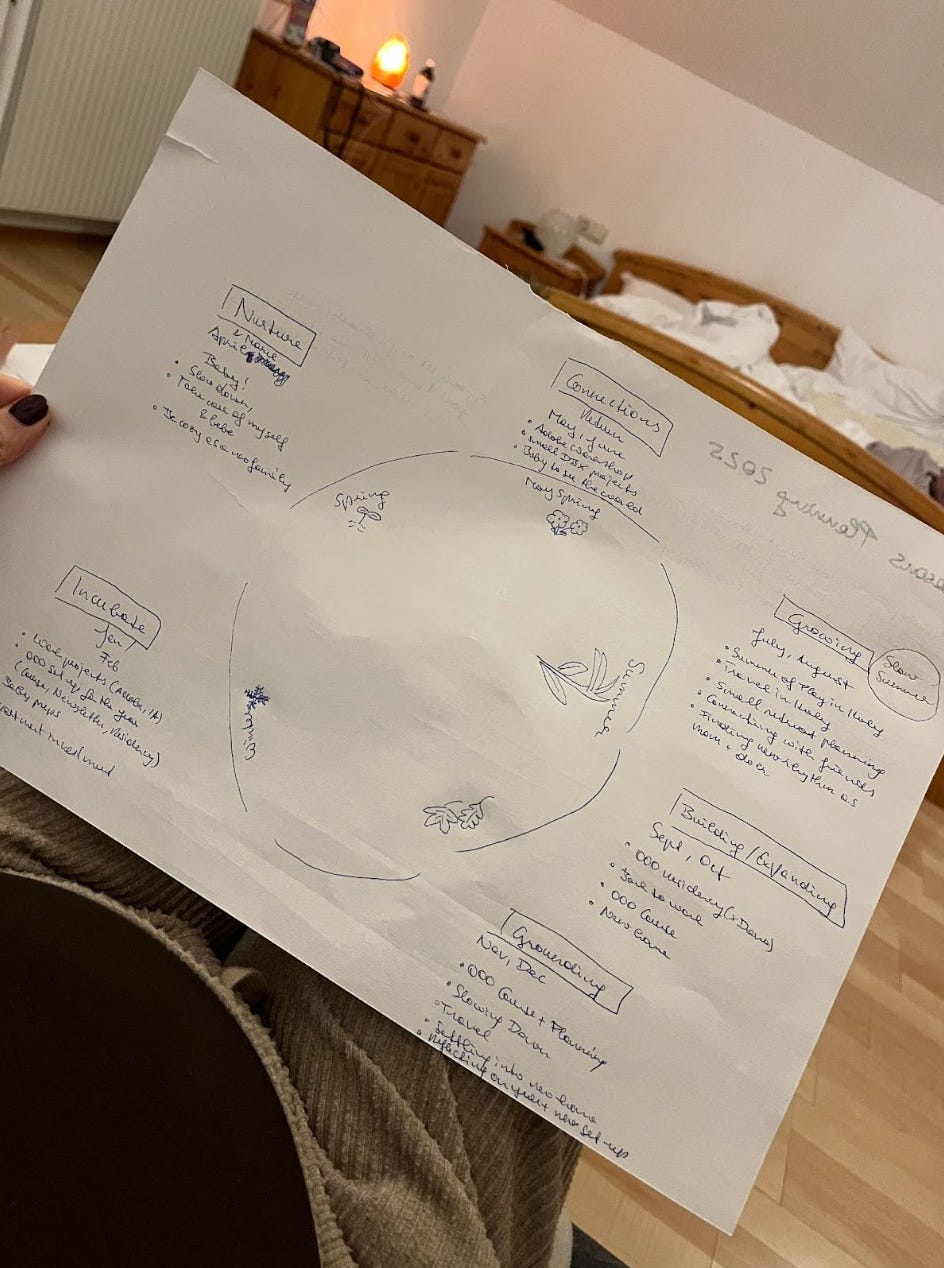 Nurture
April
Baby!
• Slow down,
• Take care of myself
& bebe
• Be cozy as a new family
Connections
Return
May, June
• Adobe Workshop
• Small DSX projects
• Baby to see the world
Spring
May Spring
Seasons Planning 2025
Incubate
Jan/
Feb
• Work projects (Adobe,
• OOO set up for the year
(Course, Newsletter, Residency)
Baby preps
Apartment investment
Winter
Summer
Growing
July, August
Slow
Summer
• Summer of Play in Italy
• Travel in Italy
• Small retreat planning
• Connecting with friends
• Finding new rhythm as
mom +
Building/Expanding
Sept, Oct
• OOO residency (x Dana)
• Back to work
• OOO Course
• New home
Grounding
Nov, Dec
• OOO Course + Planning
• Slowing Down
• Travel
• Settling into new home
• Reflecting on year + new set-up